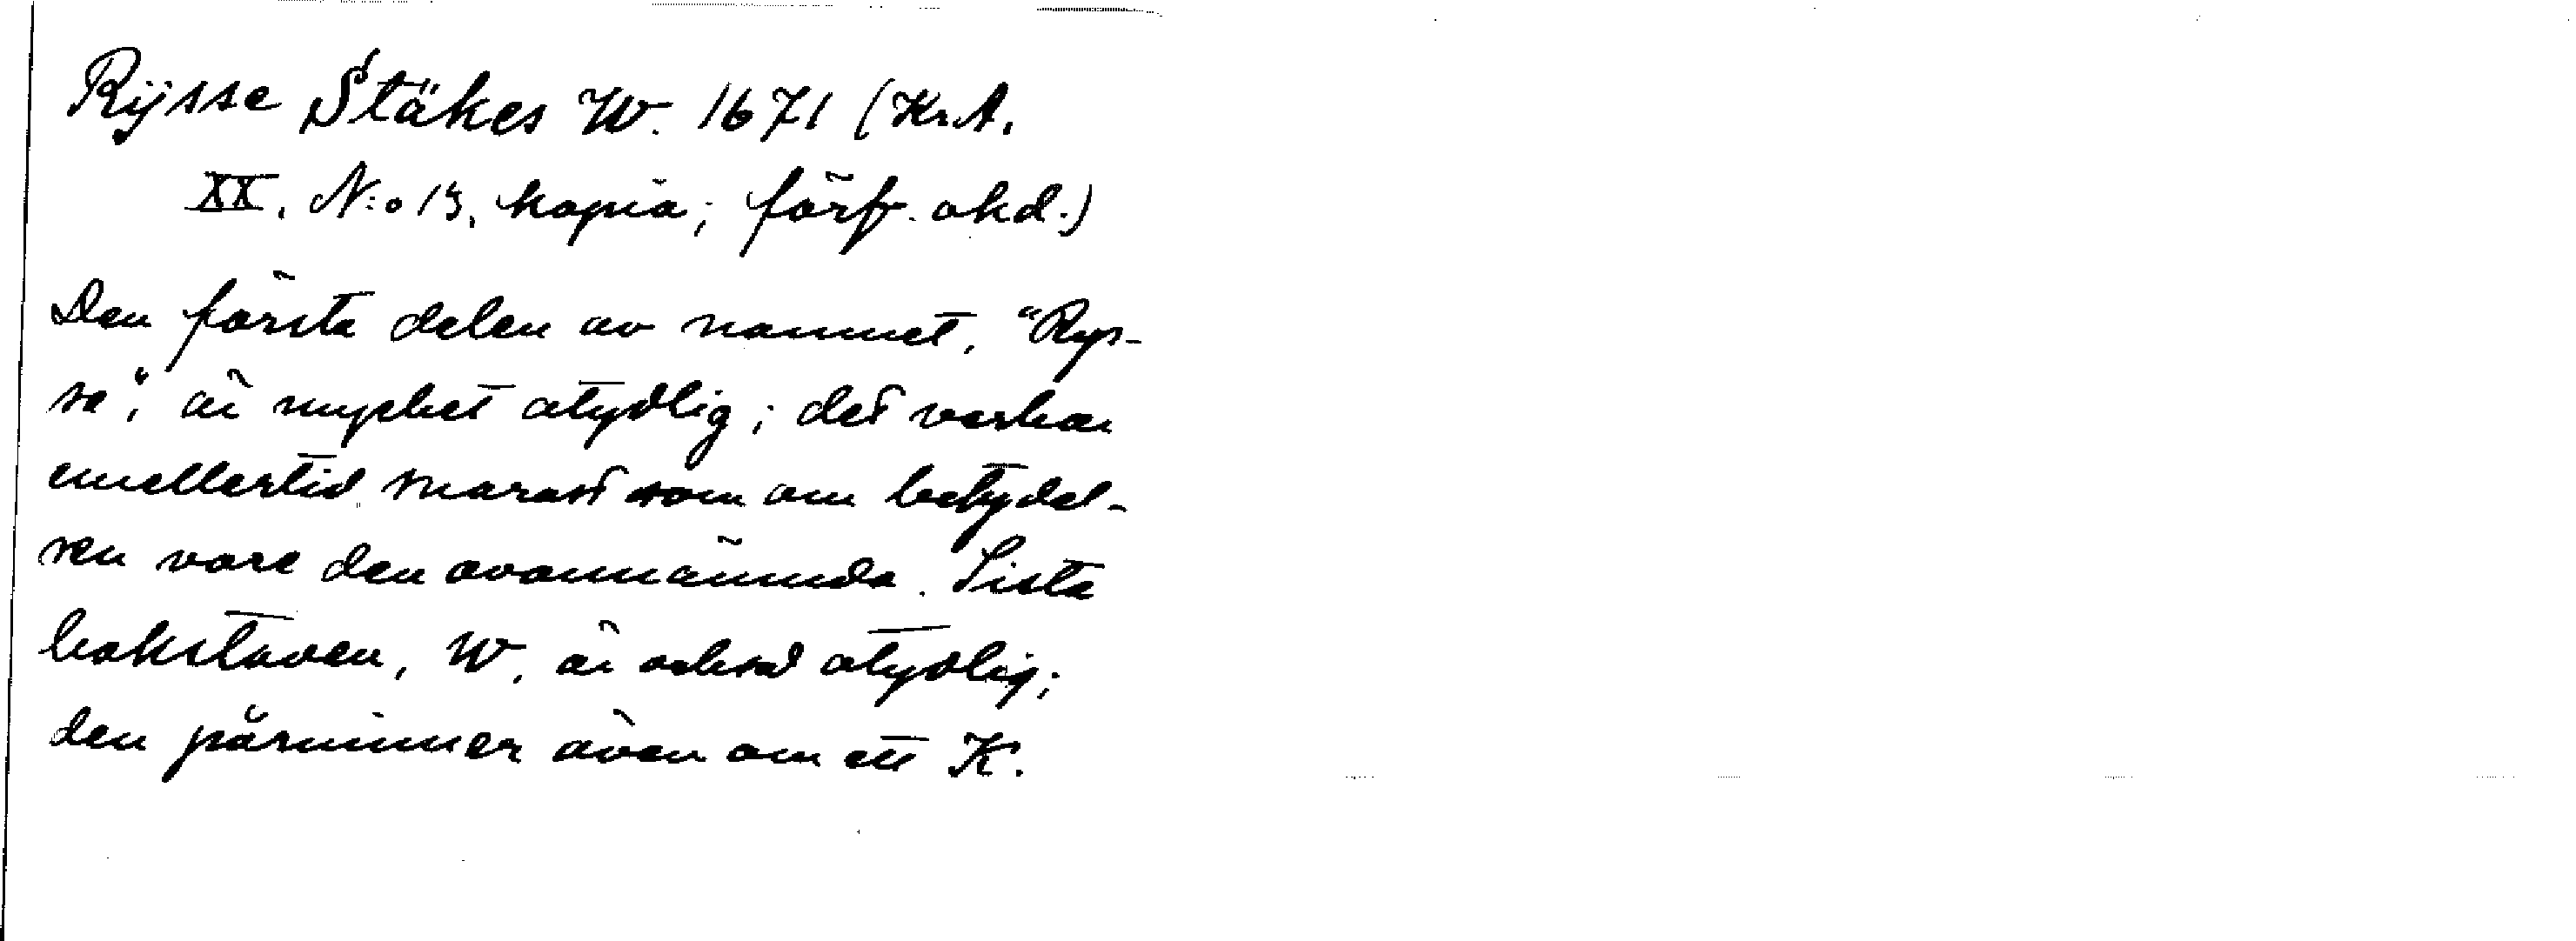 Rijsse Stäkes W. 1671 (Kr.A.
XX. N:o 13, kopia; förf. okd.)
Den första delen av namnet, "Rys-
se", är mycket otydlig; det verkar
emellertid snarast som om betydel-
sen vore den ovannämnda. Sista
bokstaven, W, är också otydlig;
den påminner även om ett K.